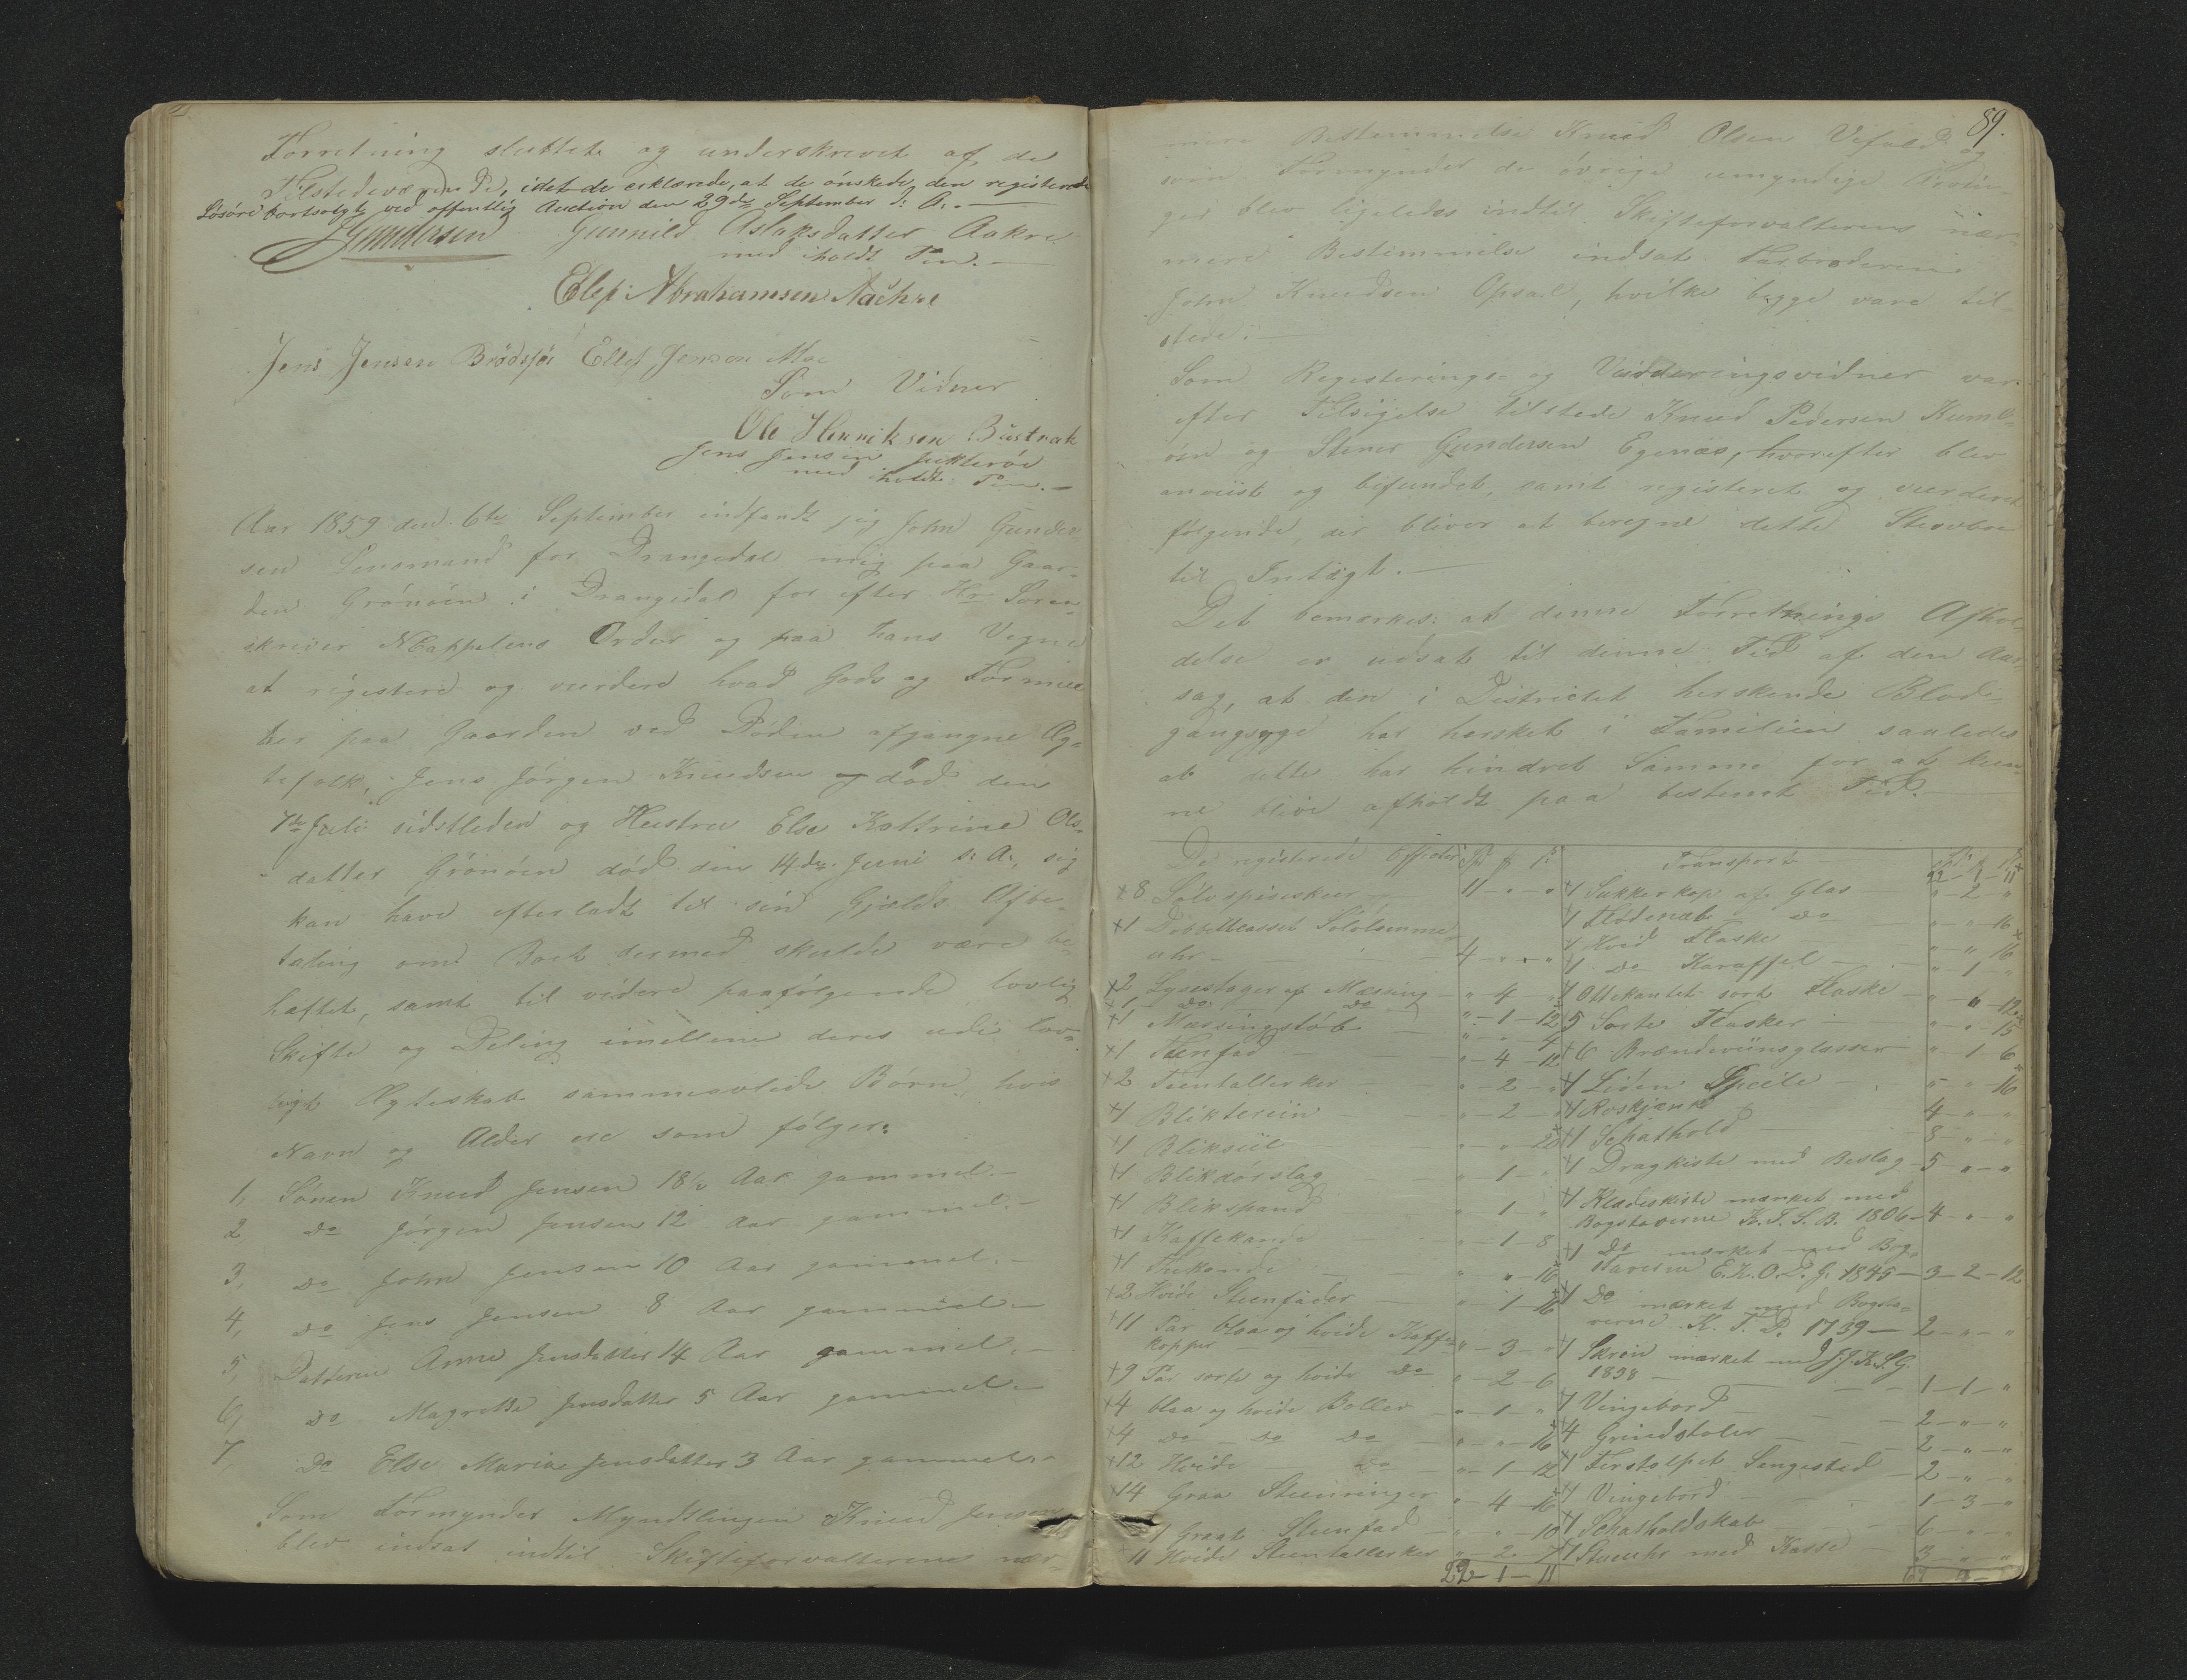 Forretning sluttet og underskrevet af de
Tilstedeværende, idet de erklærede, at de ønskede den registerede
Løsøre bortsolgt ved offentlig Auction den 29de September d: A:.—
JGundersen Gunnild Aslaksdatter Aakre
med iholdt Pen.—
Elef Abrahamsen Aachre
Jens Jensen Brødsjø Ellef Jensen Moe
Som Vidner
Ole Henriksen Bustrak
Jens Jensen
med iholdt Pen.—
Aar 1859 den 6te September indfandt jeg John Gunder-
sen Lensmand for Drangedal mig paa Gaar-
den Grønøen i Drangedal for efter Hr Soren-
skriver NCappelens Order og paa hans Vegne
at registere og vurdere hvad Gods og Formue
her paa Gaarden ved Døden afgangne Æg-
tefolk, Jens Jørgen Knudsen død den
7de Juli sidstleden og Hustru Else Kattrine Ols-
datter Grønøen død den 14de Juni d: A:, sig
kan have efterladt til sin Gjælds Afbe-
taling om Boet dermed skulde være be-
hæftet, samt til videre paafølgende lovlig
Skifte og Deling imellem deres udi lov-
ligt Ægteskab sammenavlede Børn, hvis
Navn og Alder ere som følger:
1, Sønen Knud Jensen 18½ Aar gammel.—
2 Do Jørgen Jensen 12 Aar gammel.—
3, Do John Jensen 10 Aar gammel.—
4, Do Jens Jensen 8 Aar gammel.—
5, Datteren Anne Jensdatter 14 Aar gammel.—
6, Do Magrethe Jensdatter 5 Aar gammel.—
7, Do Else Maria Jensdatter 3 Aar gammel.—
Som Formynder Myndlingen Knud Jensen
blev indsat indtil Skifteforvalterens nær-
89.
mere Bestemmelse Knud Olsen Vefald og
som Formynder de øvrige umyndige Arvin-
ger blev ligeledes indtil Skifteforvalterens nær-
mere Bestemmelse indsat Farbroderen
John Knudsen Opsal, hvilke begge vare til-
stede.—
Som Registerings- og Vurderingsvidner var
efter Tilsigelse tilstede Knud Pedersen Huml-
øen og Stener Gundersen Egenæs, hvorefter blev
anviist og befundet, samt registeret og vurderet
følgende, der bliver at beregne dette Stervboe
til Indtægt.—
Det bemærkes: at denne Forretnings Afhol-
delse er udsat til denne Tid af den Aar-
sag, at den i Districtet herskende Blod-
gangsyge har hersket i Familien saaledes
at dette har hindret Samme for at kun-
ne blive afholdt paa bestemt Tid.—
De registerede Effecter
8 Sølvspiseskeer 11 - " - "
1 Dobbeltcasset Sølvlomme-
uhr — 4 - " - "
2 Lysestager af Messing " - 4 - "
1 do do " - 1 - 12
1 Messingstøb " - " - 4
1 Tenfad " - 4 - 12
2 Teentallerker " - 2 - "
1 Blikteriin " - 2 - "
1 Bliksiil " - " - 20
1 Blikdørslag " - 1 - "
1 Blikspand " - 1 - "
1 Kaffekande " - 1 - 8
1 Thekande " - " - 16
2 Hvide Steenfader " - 1 - 16
11 Par blaa og hvide Kaffe-
kopper " - 3 - "
9 Par sorte og hvide Do " - 2 - 6
4 blaa og hvide Boller " - 1 - "
4 do do do " - " - 16
12 Hvide do " - 1 - 12
14 Graa Steenringer " - 4 - 16
1 Graat Steenfad " - " - 10
11 Hvide Steentallerker " - 2 - 7
22 - 1 - 11
Transport 22 - 1 - 11
1 Sukkerkop af Glas " - 2 - "
1 Flødenæb - do " - " - 16
1 Hvid Flaske " - " - 16
1 do Karaffel " - 1 - "
1 Ottekantet sort Flaske " - " - 12
5 Sorte Flasker " - " - 15
6 Brændeviinsglasser " - 1 - 6
1 Liden Speile " - " - 16
1 Roskjænk 4 - " - "
1 Schathold 8 - " - "
1 Dragkiste med Beslag 5 - " - "
1 Klædeskiste mærket med
Bogstaverne K. T. S. B. 1806 — 4 - " - "
1 Do mærket med Bog-
staverne E. K. O. D. G. 1845 — 3 - 2 - 12
1 Do mærket med Bogsta-
verne K. T. D. 1739 — 2 - " - "
1 Skrin mærket med J. J. K. S. G.
1838 — 1 - 1 - "
1 Vingebord 2 - " - "
4 Grindstoler 2 - " - "
1 Firstolpet Sengested 2 - " - "
1 Vingebord 1 - 3 - "
1 Schatholdskab 6 - " - "
1 Stueuhr med Kasse 3 - " - "